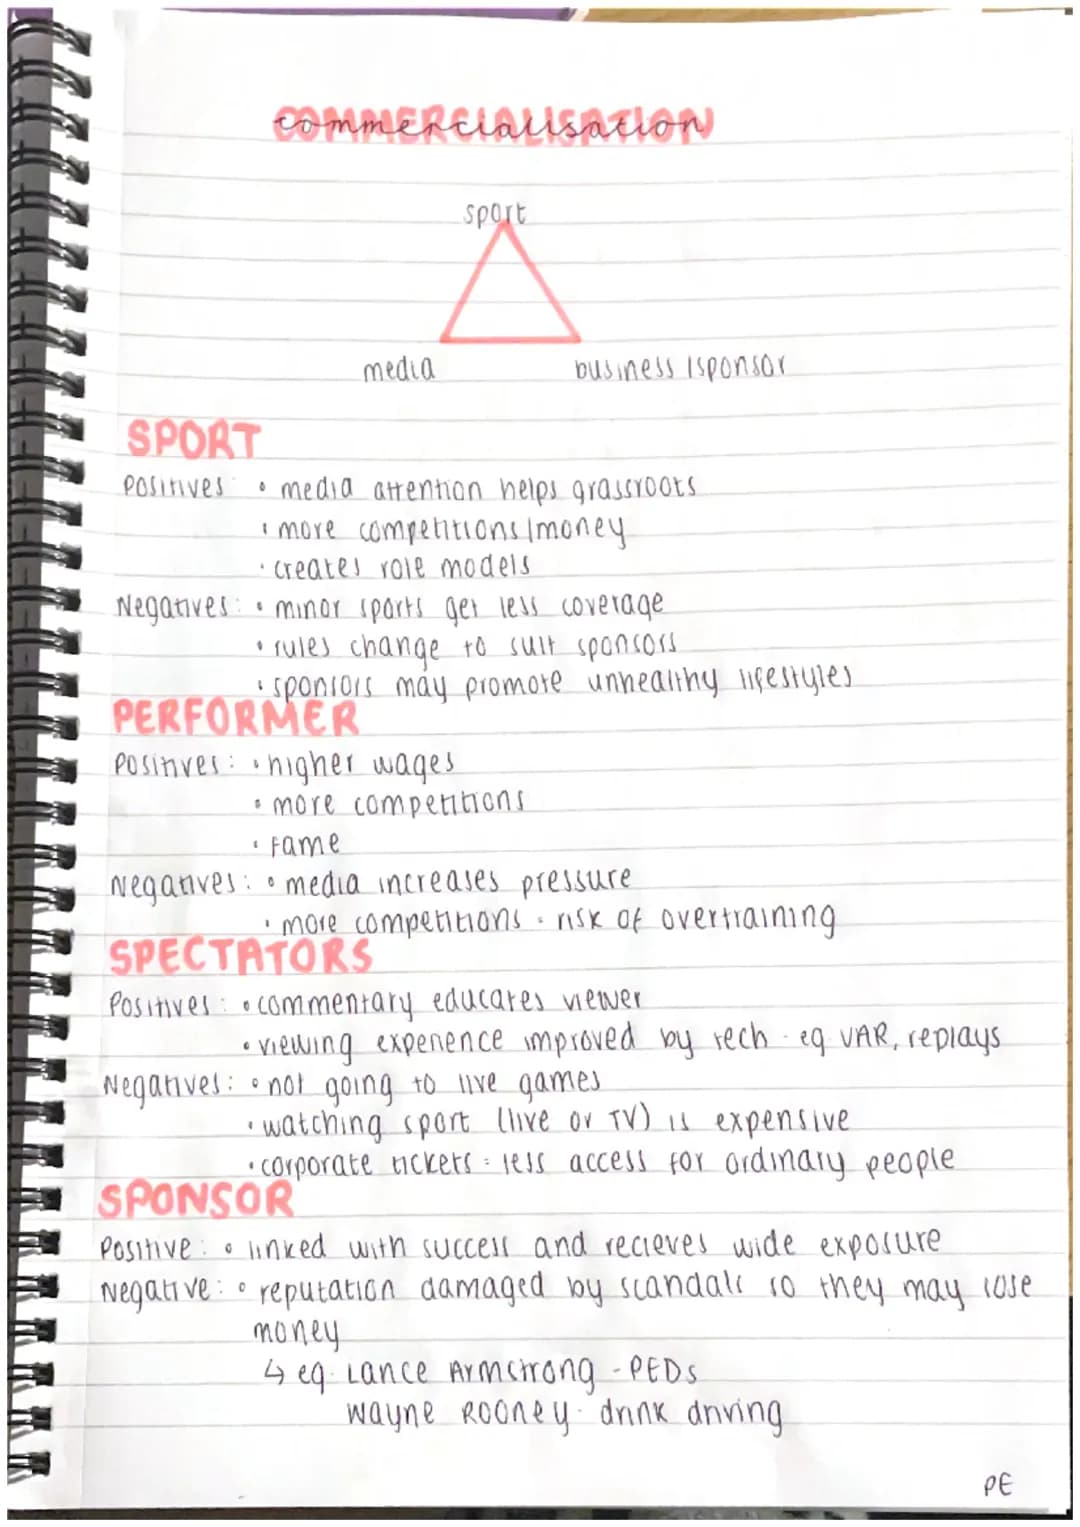 commercialisation
sport
media
business/sponsor
SPORT
Positives: • media attention helps grassroots
• more competitions/money
• creates role models
Negatives: • minor sports get less coverage
• rules change to suit sponsors
• sponsors may promote unhealthy lifestyles
PERFORMER
Positives: • higher wages
• more competitions
• Fame
Negatives: • media increases pressure
• more competitions = risk of overtraining
SPECTATORS
Positives: • commentary educates viewer
• viewing experience improved by tech - eg VAR, replays
Negatives: • not going to live games
• watching sport (live or TV) is expensive
• corporate tickets = less access for ordinary people
SPONSOR
Positive: • linked with success and recieves wide exposure
Negative: • reputation damaged by scandals so they may lose
money
↳ eg. Lance Armstrong - PEDs
Wayne Rooney - drink driving
PE